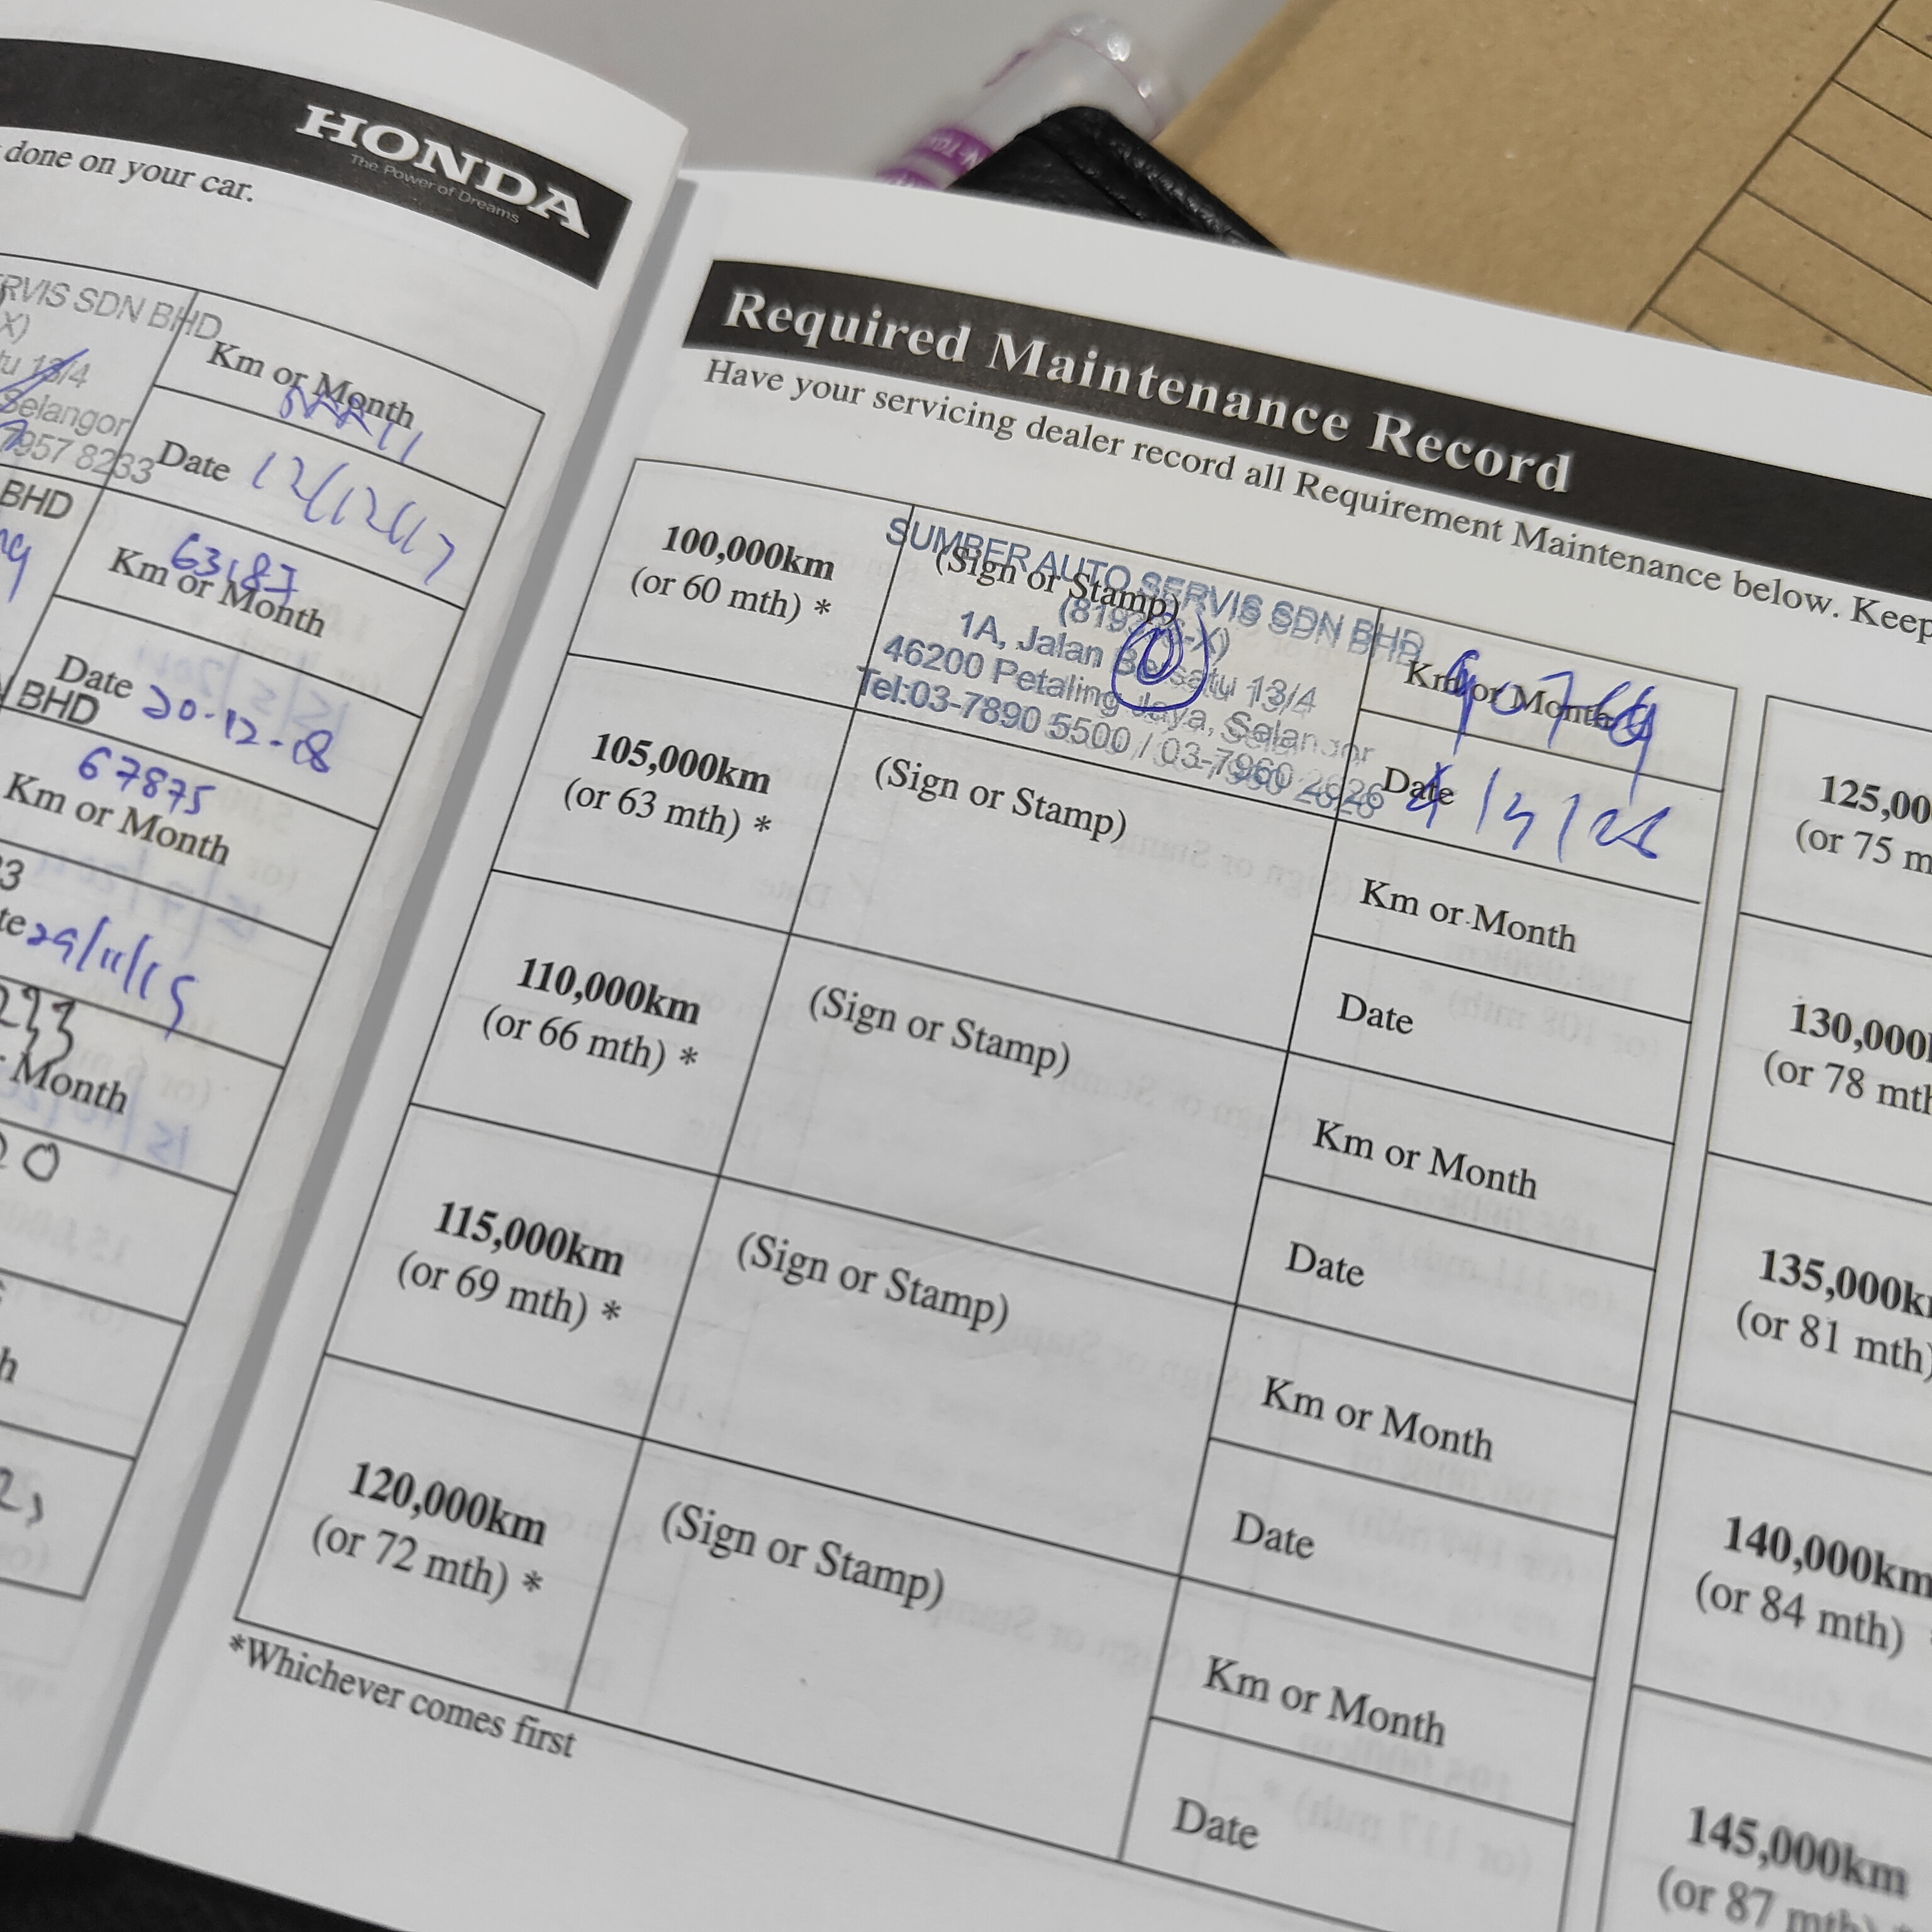 done on your car.
HONDA
The Power of Dreams
ERVIS SDN BHD
X)
tu 13/4
Selangor
7957 8233
Km or Month
Date 12/12/17
BHD
Km or Month
63187
Date 20-12-18
BHD
67875
Km or Month
29/11/15
Month
Required Maintenance Record
Have your servicing dealer record all Requirement Maintenance below. Keep
100,000km
(or 60 mth) *
(Sign or Stamp)
SUMBER AUTO SERVIS SDN BHD
1A, Jalan Bersatu 13/4
46200 Petaling Jaya, Selangor
Tel:03-7890 5500 / 03-7960 2626
Km or Month
Date
105,000km
(or 63 mth) *
(Sign or Stamp)
Km or Month
Date
110,000km
(or 66 mth) *
(Sign or Stamp)
Km or Month
Date
115,000km
(or 69 mth) *
(Sign or Stamp)
Km or Month
Date
120,000km
(or 72 mth) *
(Sign or Stamp)
Km or Month
Date
*Whichever comes first
125,00
(or 75 m
130,000
(or 78 mth
135,000k
(or 81 mth)
140,000km
(or 84 mth)
145,000km
(or 87 mth)